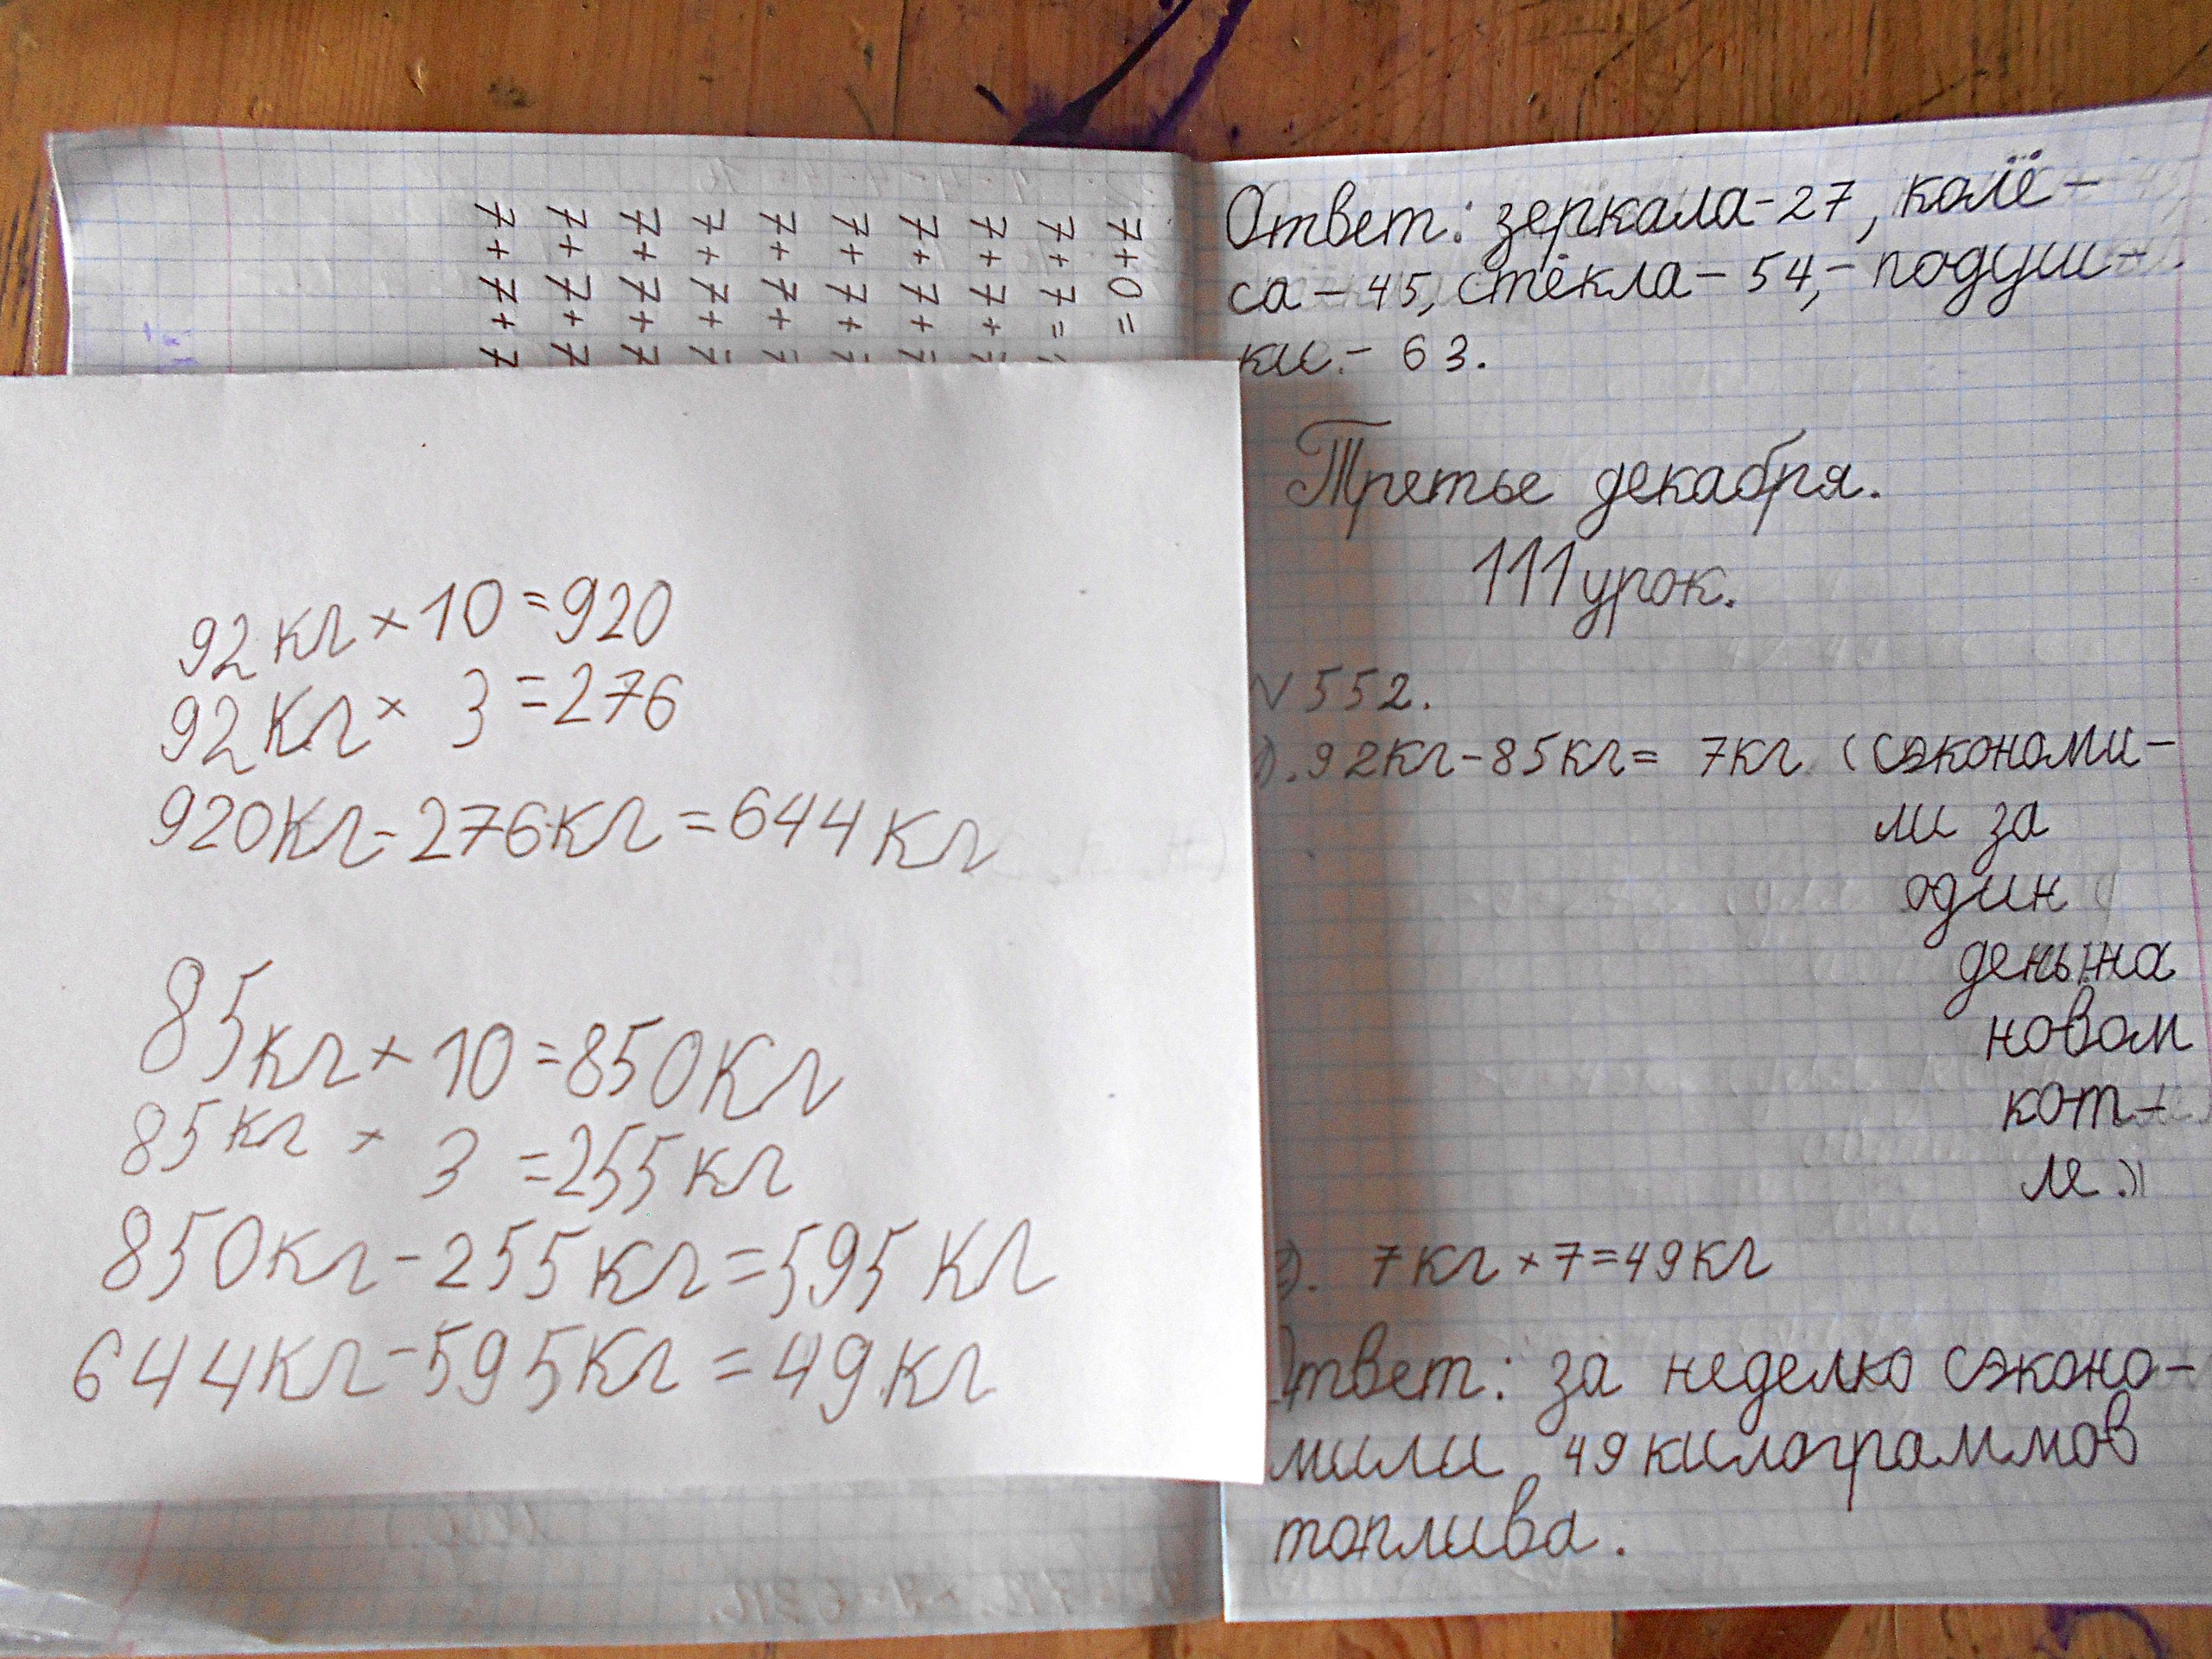 7+0=
7+7=
7+7+
7+7+
7+7+
7+7+7
7+7+7
7+7+7
7+7+7
7+7+7
92кг × 10 = 920
92кг × 3 = 276
920кг - 276кг = 644кг
85кг × 10 = 850кг
85кг × 3 = 255кг
850кг - 255кг = 595кг
644кг - 595кг = 49кг
Ответ: зеркала - 27, колё-
са - 45, стёкла - 54, - подуш-
ки. - 63.
Третье декабря.
111 урок.
№ 552.
92кг - 85кг = 7кг (сэкономи-
ли за
один
день на
новом
кот-
ле.)
7кг × 7 = 49кг
Ответ: за неделю сэконо-
мили 49 килограммов
топлива.